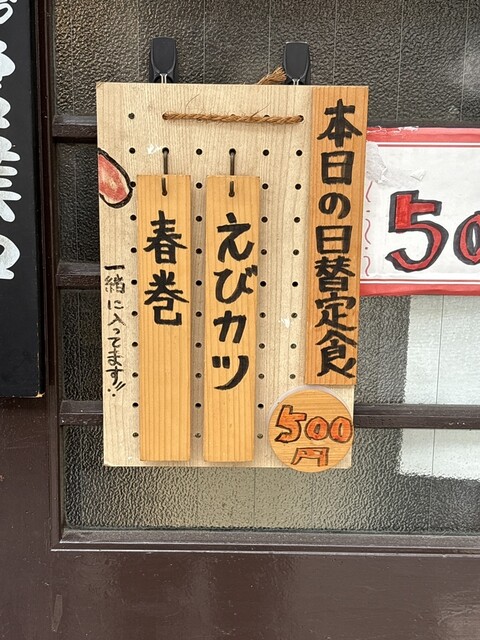 本日の日替定食
えびカツ
春巻
一緒に入ってます!!
500
円
50